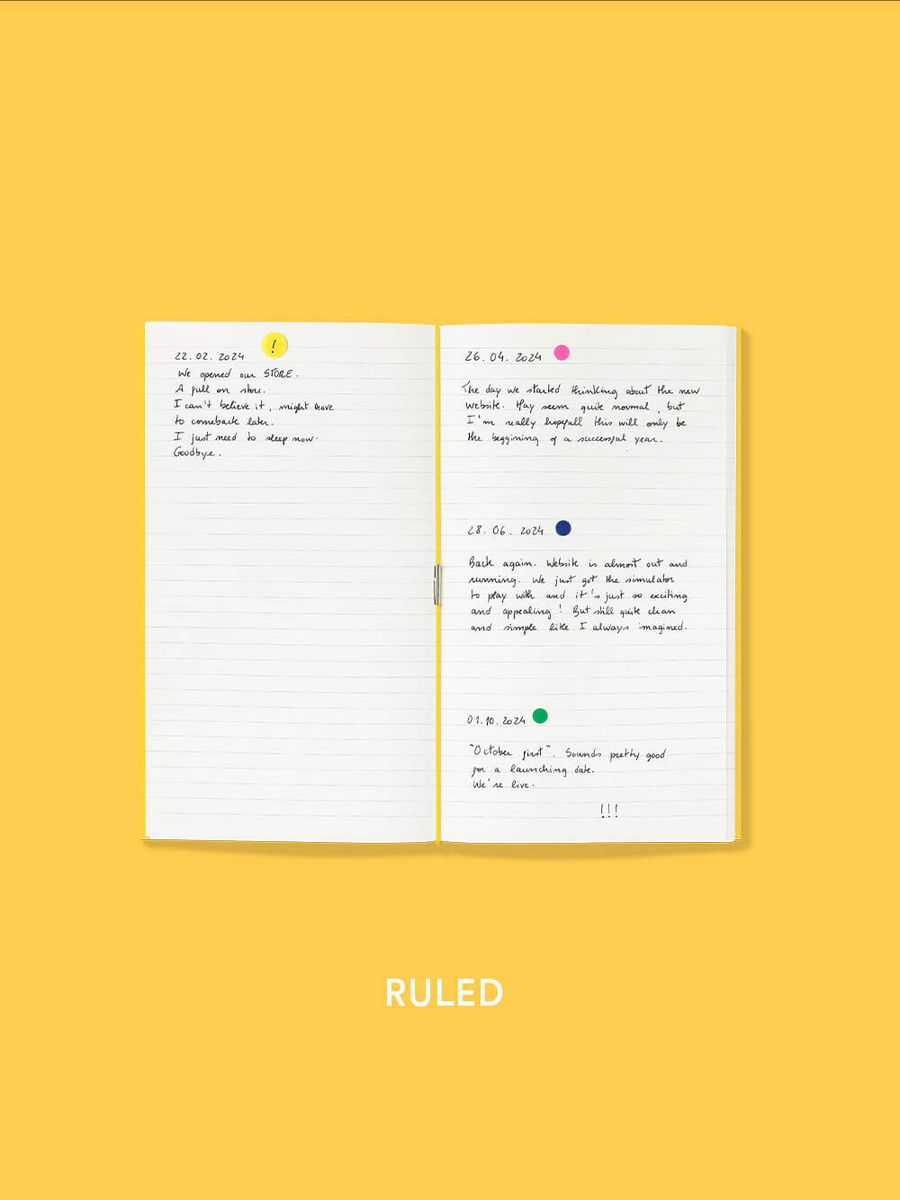 22.02.2024
!
We opened our STORE.
A full on store.
I can't believe it, might have
to comeback later.
I just need to sleep now.
Goodbye.
26.04.2024
The day we started thinking about the new
website. May seem quite normal, but
I'm really hopefull this will only be
the beggining of a successful year.
28.06.2024
Back again. Website is almost out and
running. We just got the simulator
to play with and it's just so exciting
and appealing! But still quite clean
and simple like I always imagined.
01.10.2024
"October first". Sounds pretty good
for a launching date.
We're live.
!!!
RULED